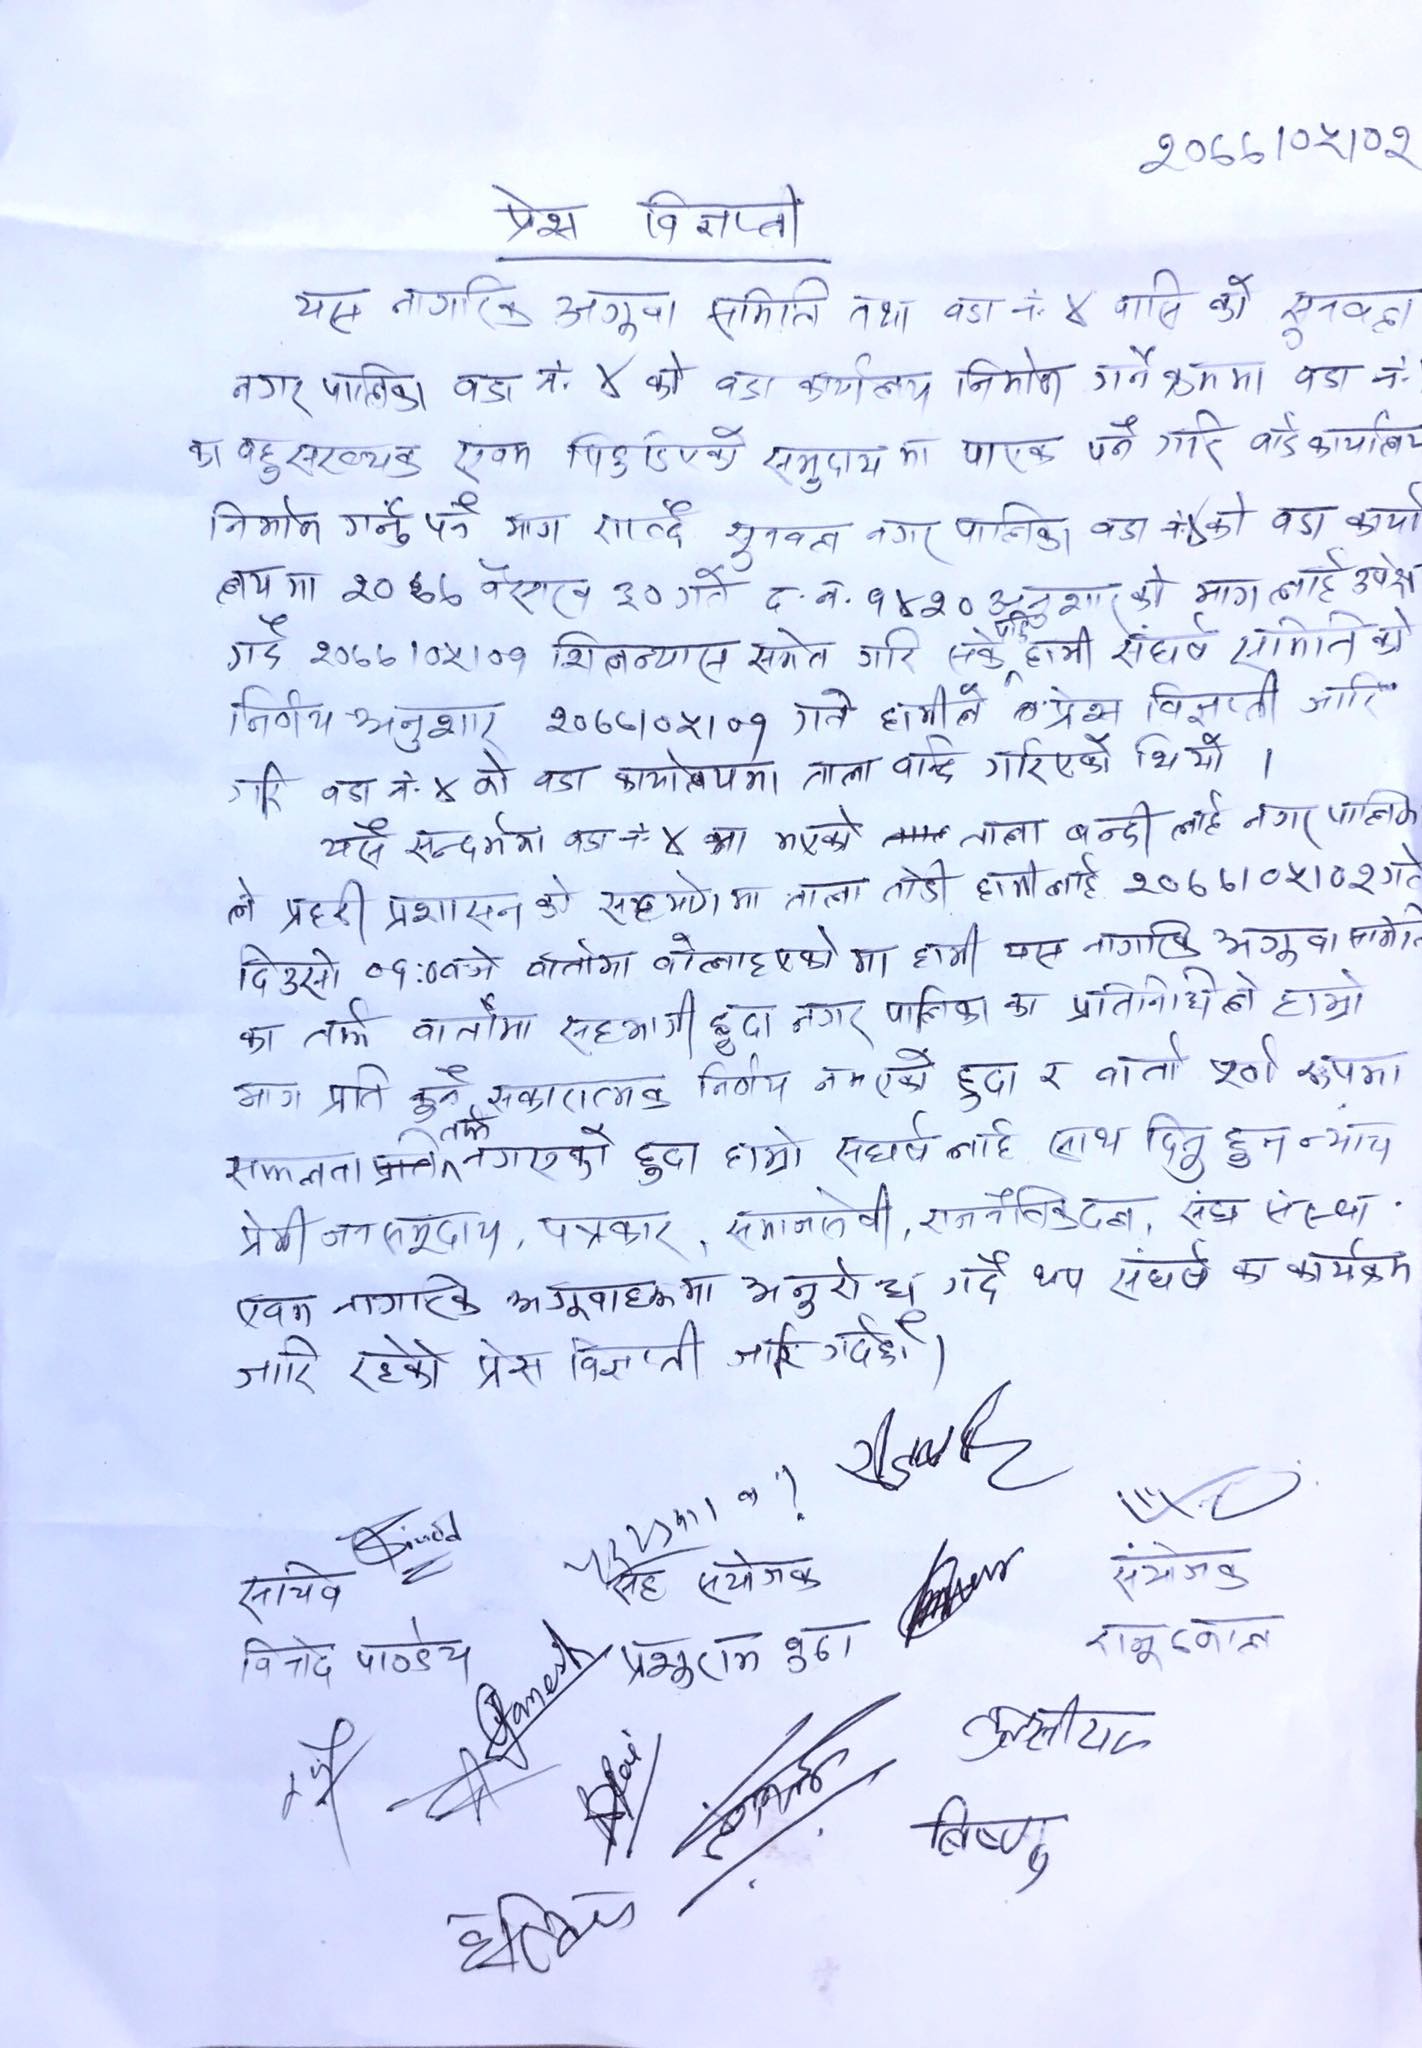 २०७७।०५।०२
प्रेस विज्ञप्ती
यस नागरिक अगुवा समिति तथा वडा नं. ४ वासि को सुनवल
नगर पालिका वडा नं. ४ को वडा कार्यालय निर्माण गर्ने क्रममा वडा नं.
का बहुसंख्यक एवम पिछडिएको समुदाय मा पाएक पर्ने गरि वार्ड कार्यालय
निर्माण गर्नु पर्ने माग राख्दै सुनवल नगर पालिका वडा नं ४ को वडा कार्या
लय मा २०७७ वैसाख ३० गते द. नं. १४२० अनुशार को माग लाई उपेक्षा
गर्दै २०७७।०५।०१ शिलन्यास समेत गरि सके पछि हामी संघर्ष समिति को
निर्णय अनुशार २०७७।०५।०१ गते हामीले प्रेस विज्ञप्ती जारि
गरि वडा नं. ४ को वडा कार्यालयमा ताला वन्दि गरिएको थियौ ।
यसै सन्दर्भमा वडा नं. ४ मा भएको ताला बन्दी लाई नगर पालिका
ले प्रहरी प्रशासन को सहयोगमा ताला तोडी हामीलाई २०७७।०५।०२ गते
दिउसो बजे वार्तामा वोलाइएको मा हामी यस नागरिक अगुवा समिति
का तर्फ वार्तामा सहभागी हुदा नगर पालिका का प्रतिनिधिले हाम्रो
माग प्रति कुनै सकारात्मक निर्णय नभएको हुदा र वार्ता पूर्ण रूपमा
सफलता तर्फ नगएको हुदा हाम्रो संघर्ष लाई साथ दिनु हुन न्याय
प्रेमी जनसमूदाय, पत्रकार, समाजसेवी, राजनैतिक दल, संघ संस्था
एवम नागरिक अगुवाहरूमा अनुरोध गर्दै थप संघर्ष का कार्यक्रम
जारि रहेको प्रेस विज्ञप्ती जारि गर्दछौं।
सचिव सह संयोजक संयोजक
विनोद पाण्डेय
Ganesh
विष्णु